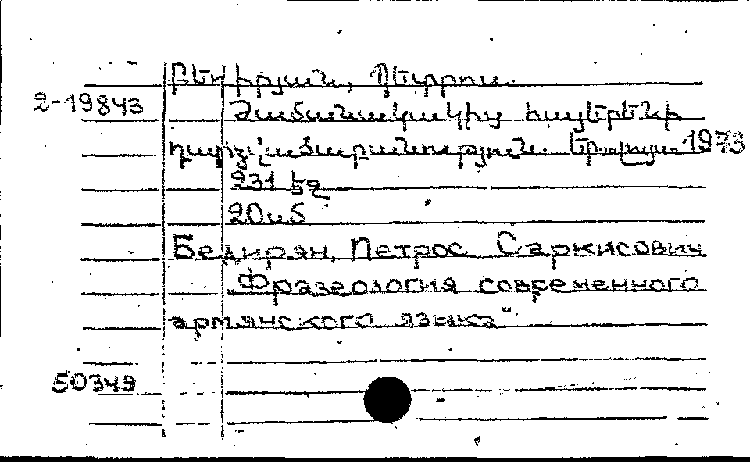 Բեդիրյան, Պետրոս.
2-19843 Ժամանակակից հայերենի
դարձվածաբանություն. Եր. 1973
231 էջ
20սմ
Бедирян, Петрос Саркисович
"Фразеология современного
армянского языка"
50349